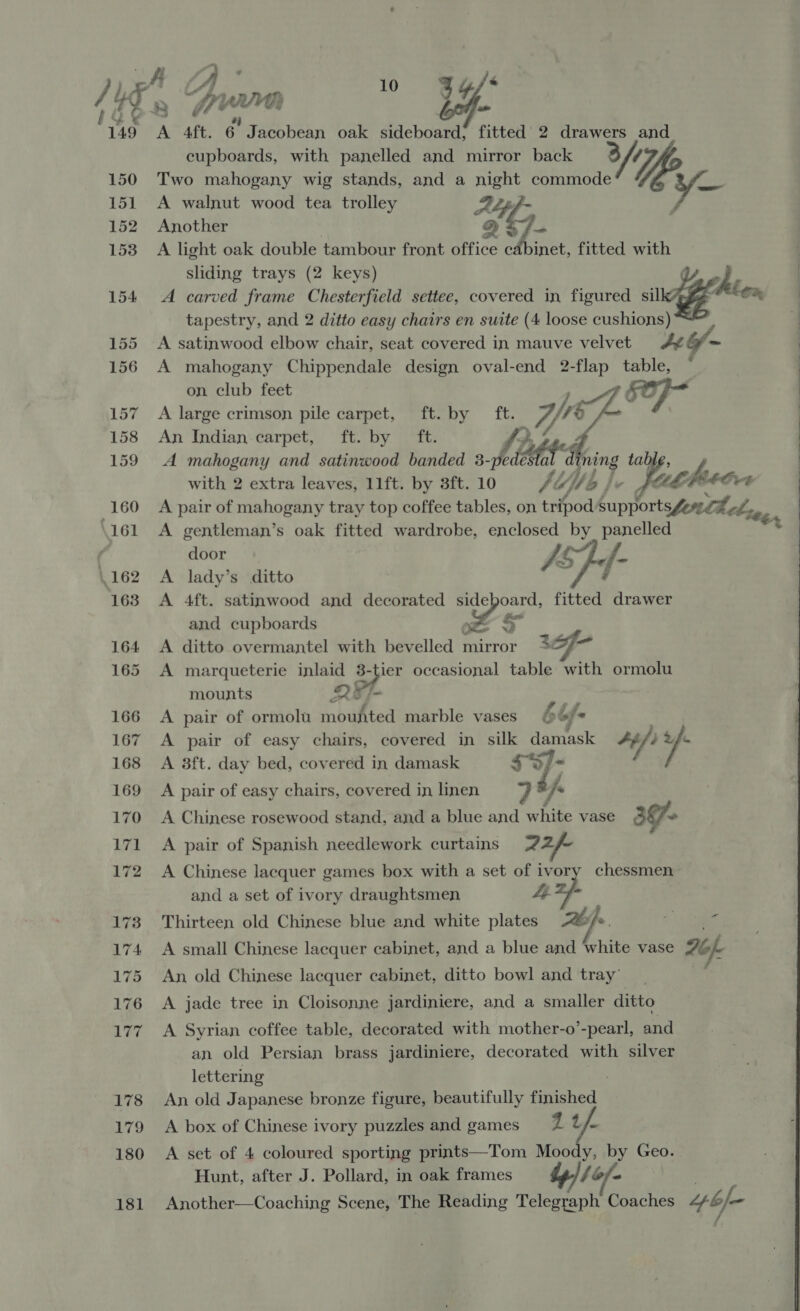 10 34/-
149 A 4ft. 6" Jacobean oak sideboard, fitted 2 drawers and
cupboards, with panelled and mirror back
150 Two mahogany wig stands, and a night commode
151 A walnut wood tea trolley
152 Another
153 A light oak double tambour front office cabinet, fitted with
sliding trays (2 keys)
154 A carved frame Chesterfield settee, covered in figured silk
tapestry, and 2 ditto easy chairs en suite (4 loose cushions)
155 A satinwood elbow chair, seat covered in mauve velvet
156 A mahogany Chippendale design oval-end 2-flap table,
on club feet
157 A large crimson pile carpet, ft. by ft.
158 An Indian carpet, ft. by ft.
159 A mahogany and satinwood banded 3-pedestal dining table,
with 2 extra leaves, 11ft. by 3ft. 10
160 A pair of mahogany tray top coffee tables, on tripod supports
161 A gentleman's oak fitted wardrobe, enclosed by panelled
door
162 A lady's ditto
163 A 4ft. satinwood and decorated sideboard, fitted drawer
and cupboards
164 A ditto overmantel with bevelled mirror
165 A marqueterie inlaid 3-tier occasional table with ormolu
mounts
166 A pair of ormolu mounted marble vases
167 A pair of easy chairs, covered in silk damask
168 A 3ft. day bed, covered in damask
169 A pair of easy chairs, covered in linen
170 A Chinese rosewood stand, and a blue and white vase
171 A pair of Spanish needlework curtains 22/-
172 A Chinese lacquer games box with a set of ivory chessmen
and a set of ivory draughtsmen 42/-
173 Thirteen old Chinese blue and white plates
174 A small Chinese lacquer cabinet, and a blue and white vase
175 An old Chinese lacquer cabinet, ditto bowl and tray
176 A jade tree in Cloisonne jardiniere, and a smaller ditto
177 A Syrian coffee table, decorated with mother-o'-pearl, and
an old Persian brass jardiniere, decorated with silver
lettering
178 An old Japanese bronze figure, beautifully finished
179 A box of Chinese ivory puzzles and games
180 A set of 4 coloured sporting prints—Tom Moody, by Geo.
Hunt, after J. Pollard, in oak frames
181 Another—Coaching Scene, The Reading Telegraph Coaches 46/-